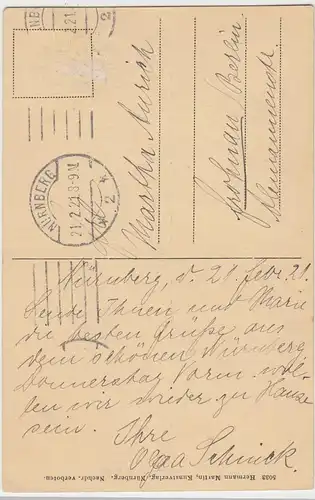 NÜRNBERG
21.2.21. 8-9 N.
* 2 *
Martha Aurich
Frohnau / Berlin.
Nürnberg, d. 21. Febr. 21.
Sende Ihnen und Marie
die besten Grüße aus
dem schönen Nürnberg
Donnerstag Vorm. woll-
ten wir wieder zu Hause
sein. Ihre
Olga Schinck.
5033 Hermann Martin, Kunstverlag, Nürnberg. Nachdr. verboten.